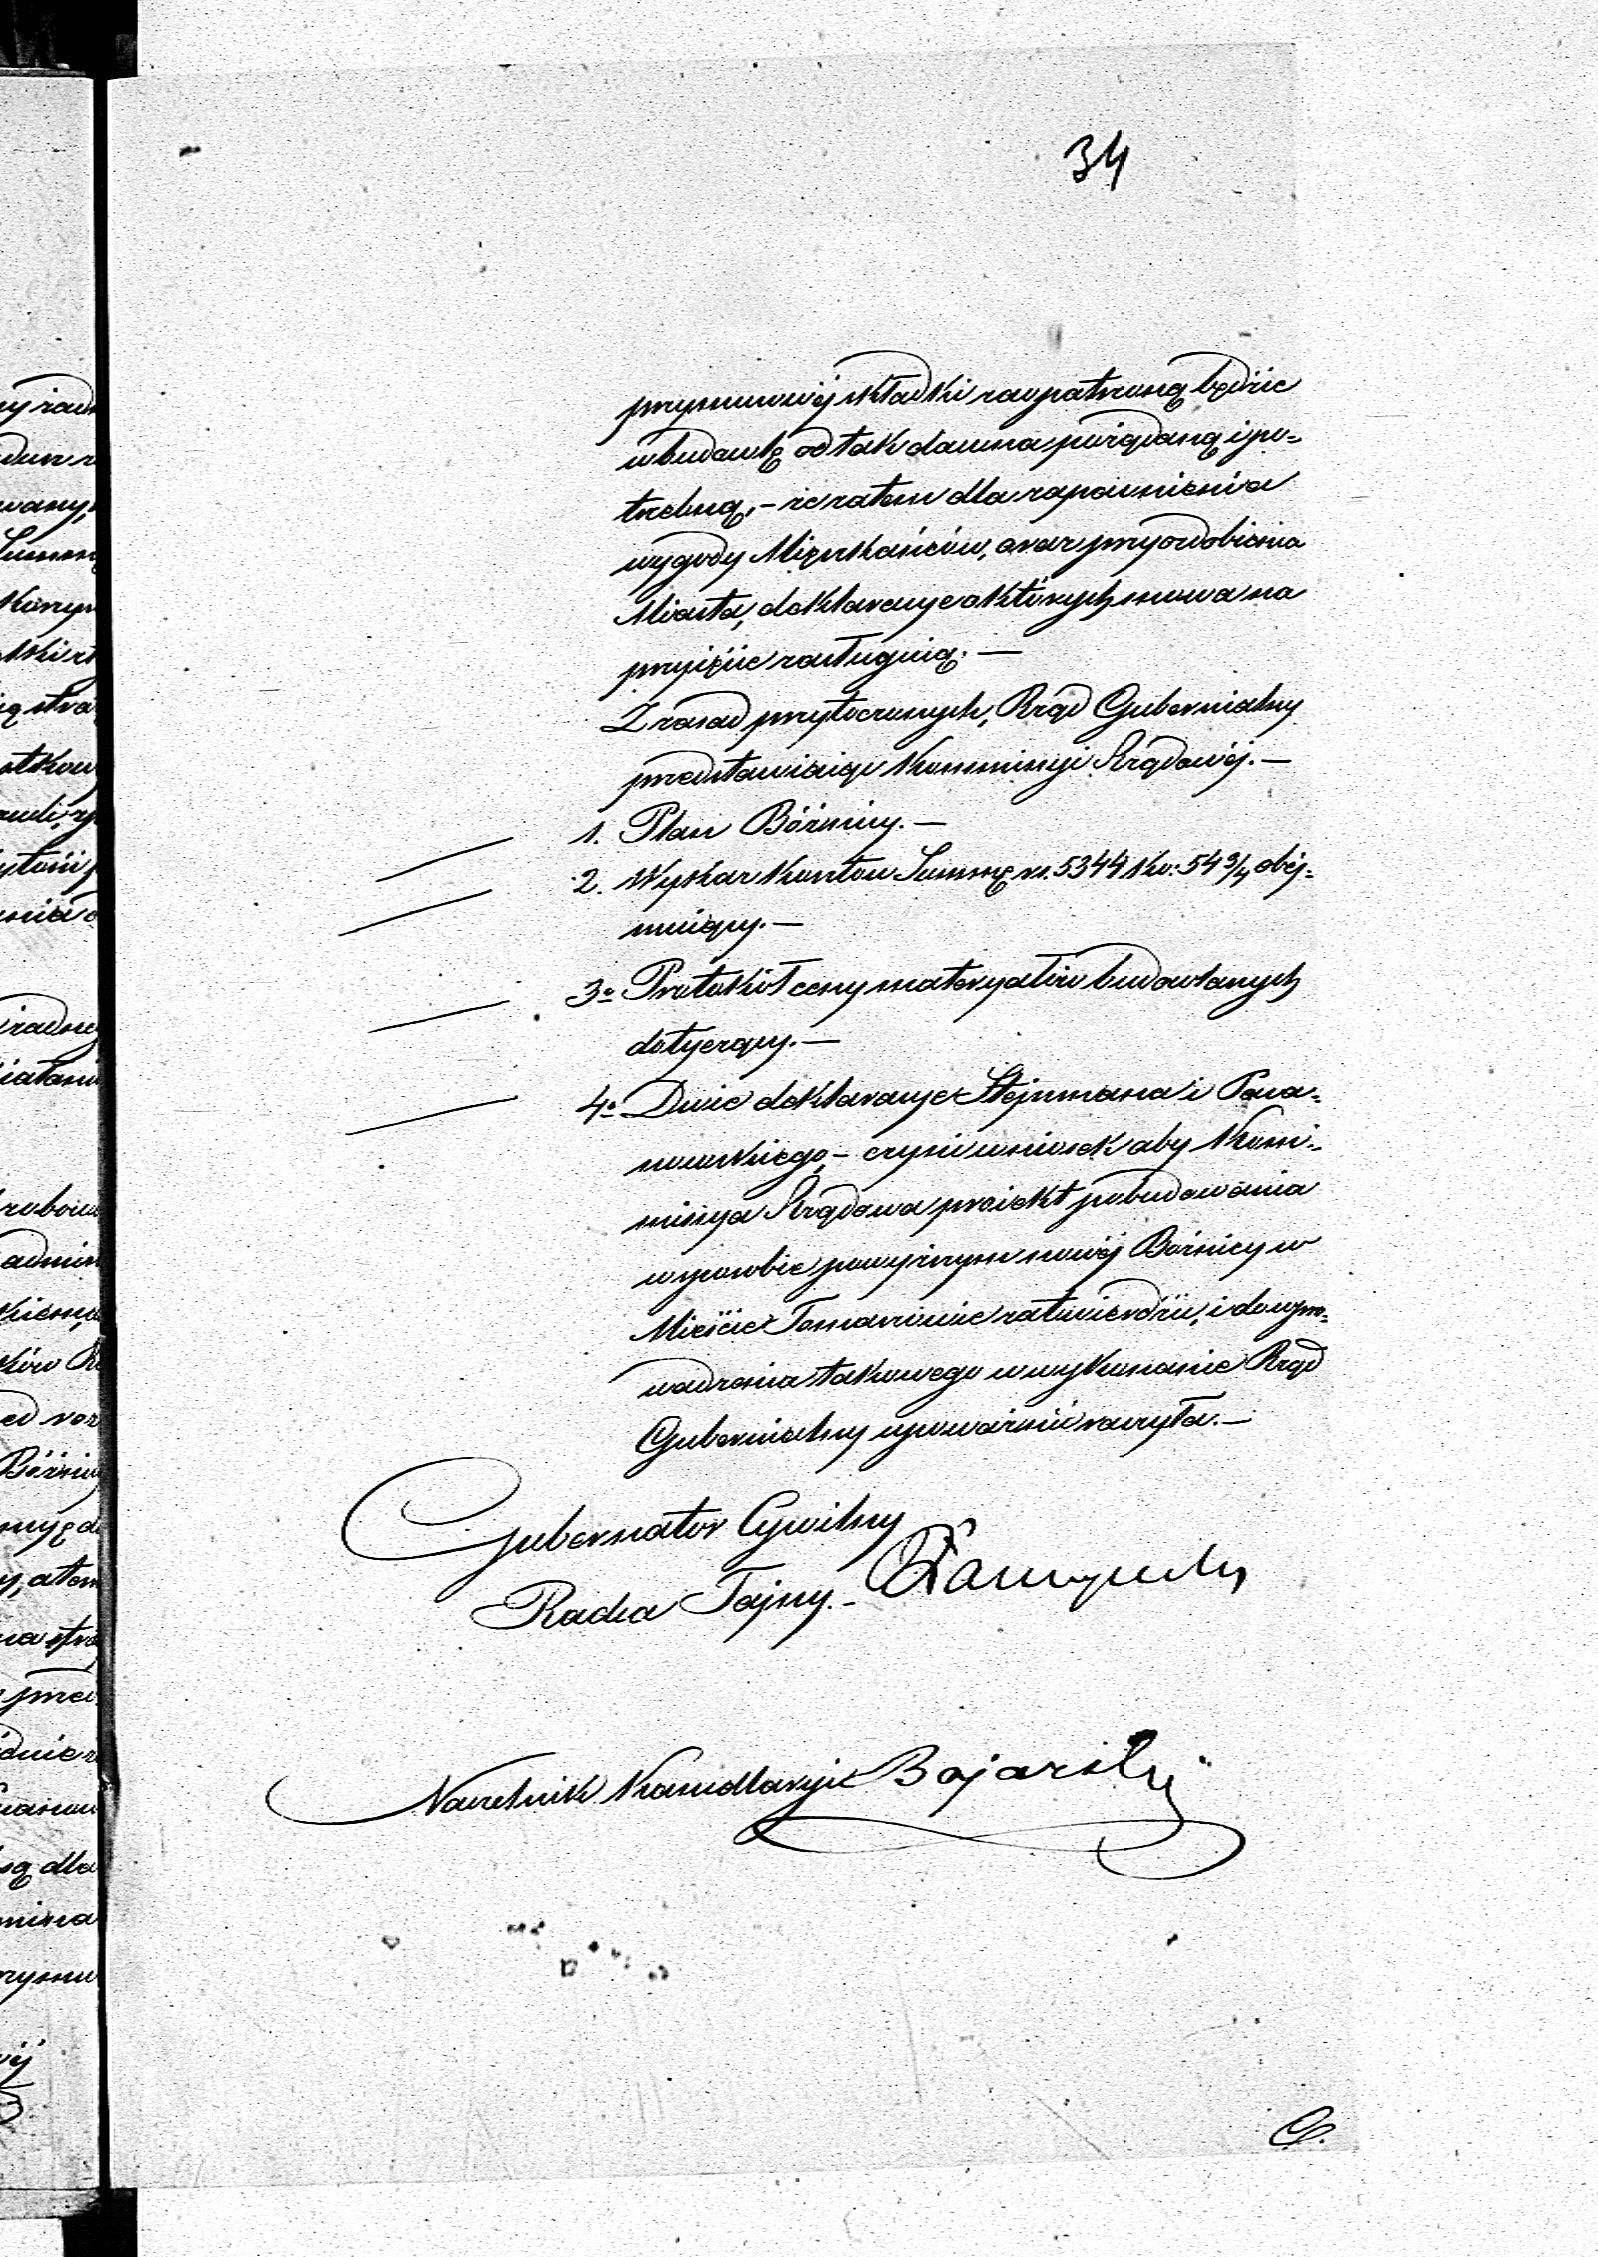 34
przymusowéj składki zaopatrzoną będzie
w budowlę od tak dawna pożądaną i po-
trzebną, – że zatem dla zapewnienia
wygody Mieszkańców, oraz przyozdobienia
Miasta, deklaracye o których mowa na
przyięcie zasługuią. –
Z zasad przytoczonych, Rząd Gubernialny
przedstawiaiąc Kommissyi Rządowéj. –
1. Plan Bóżnicy. –
2. Wykaz kosztów Summę rs. 5344 ko: 54 3/4 obéj-
muiący. –
3o Protokół ceny materyałów budowlanych
dotyczący. –
4o Dwie deklaracye Stejnmana i
– czyni wniosek aby Kom-
missya Rządowa proiekt pobudowania
w sposobie powyższym nowéj Bóżnicy w
Mieście Tomaszowie zatwierdzić, i do wpro-
wadzenia takowego w wykonanie Rząd
Gubernialny upoważnić raczyła. –
Gubernator Cywilny
Radca Tajny. –
Naczelnik Kancellaryi Bojarski